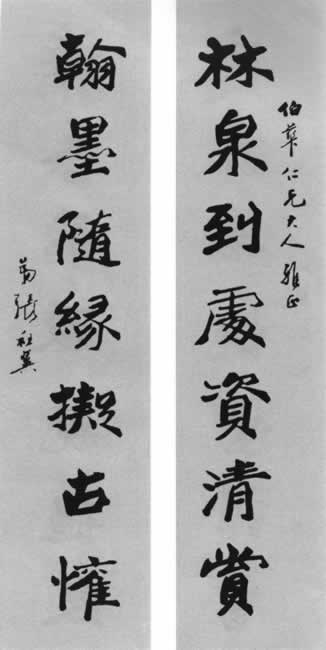 林泉到處資清賞
伯華仁兄大人雅正
翰墨隨緣擬古懽
弟張祖翼